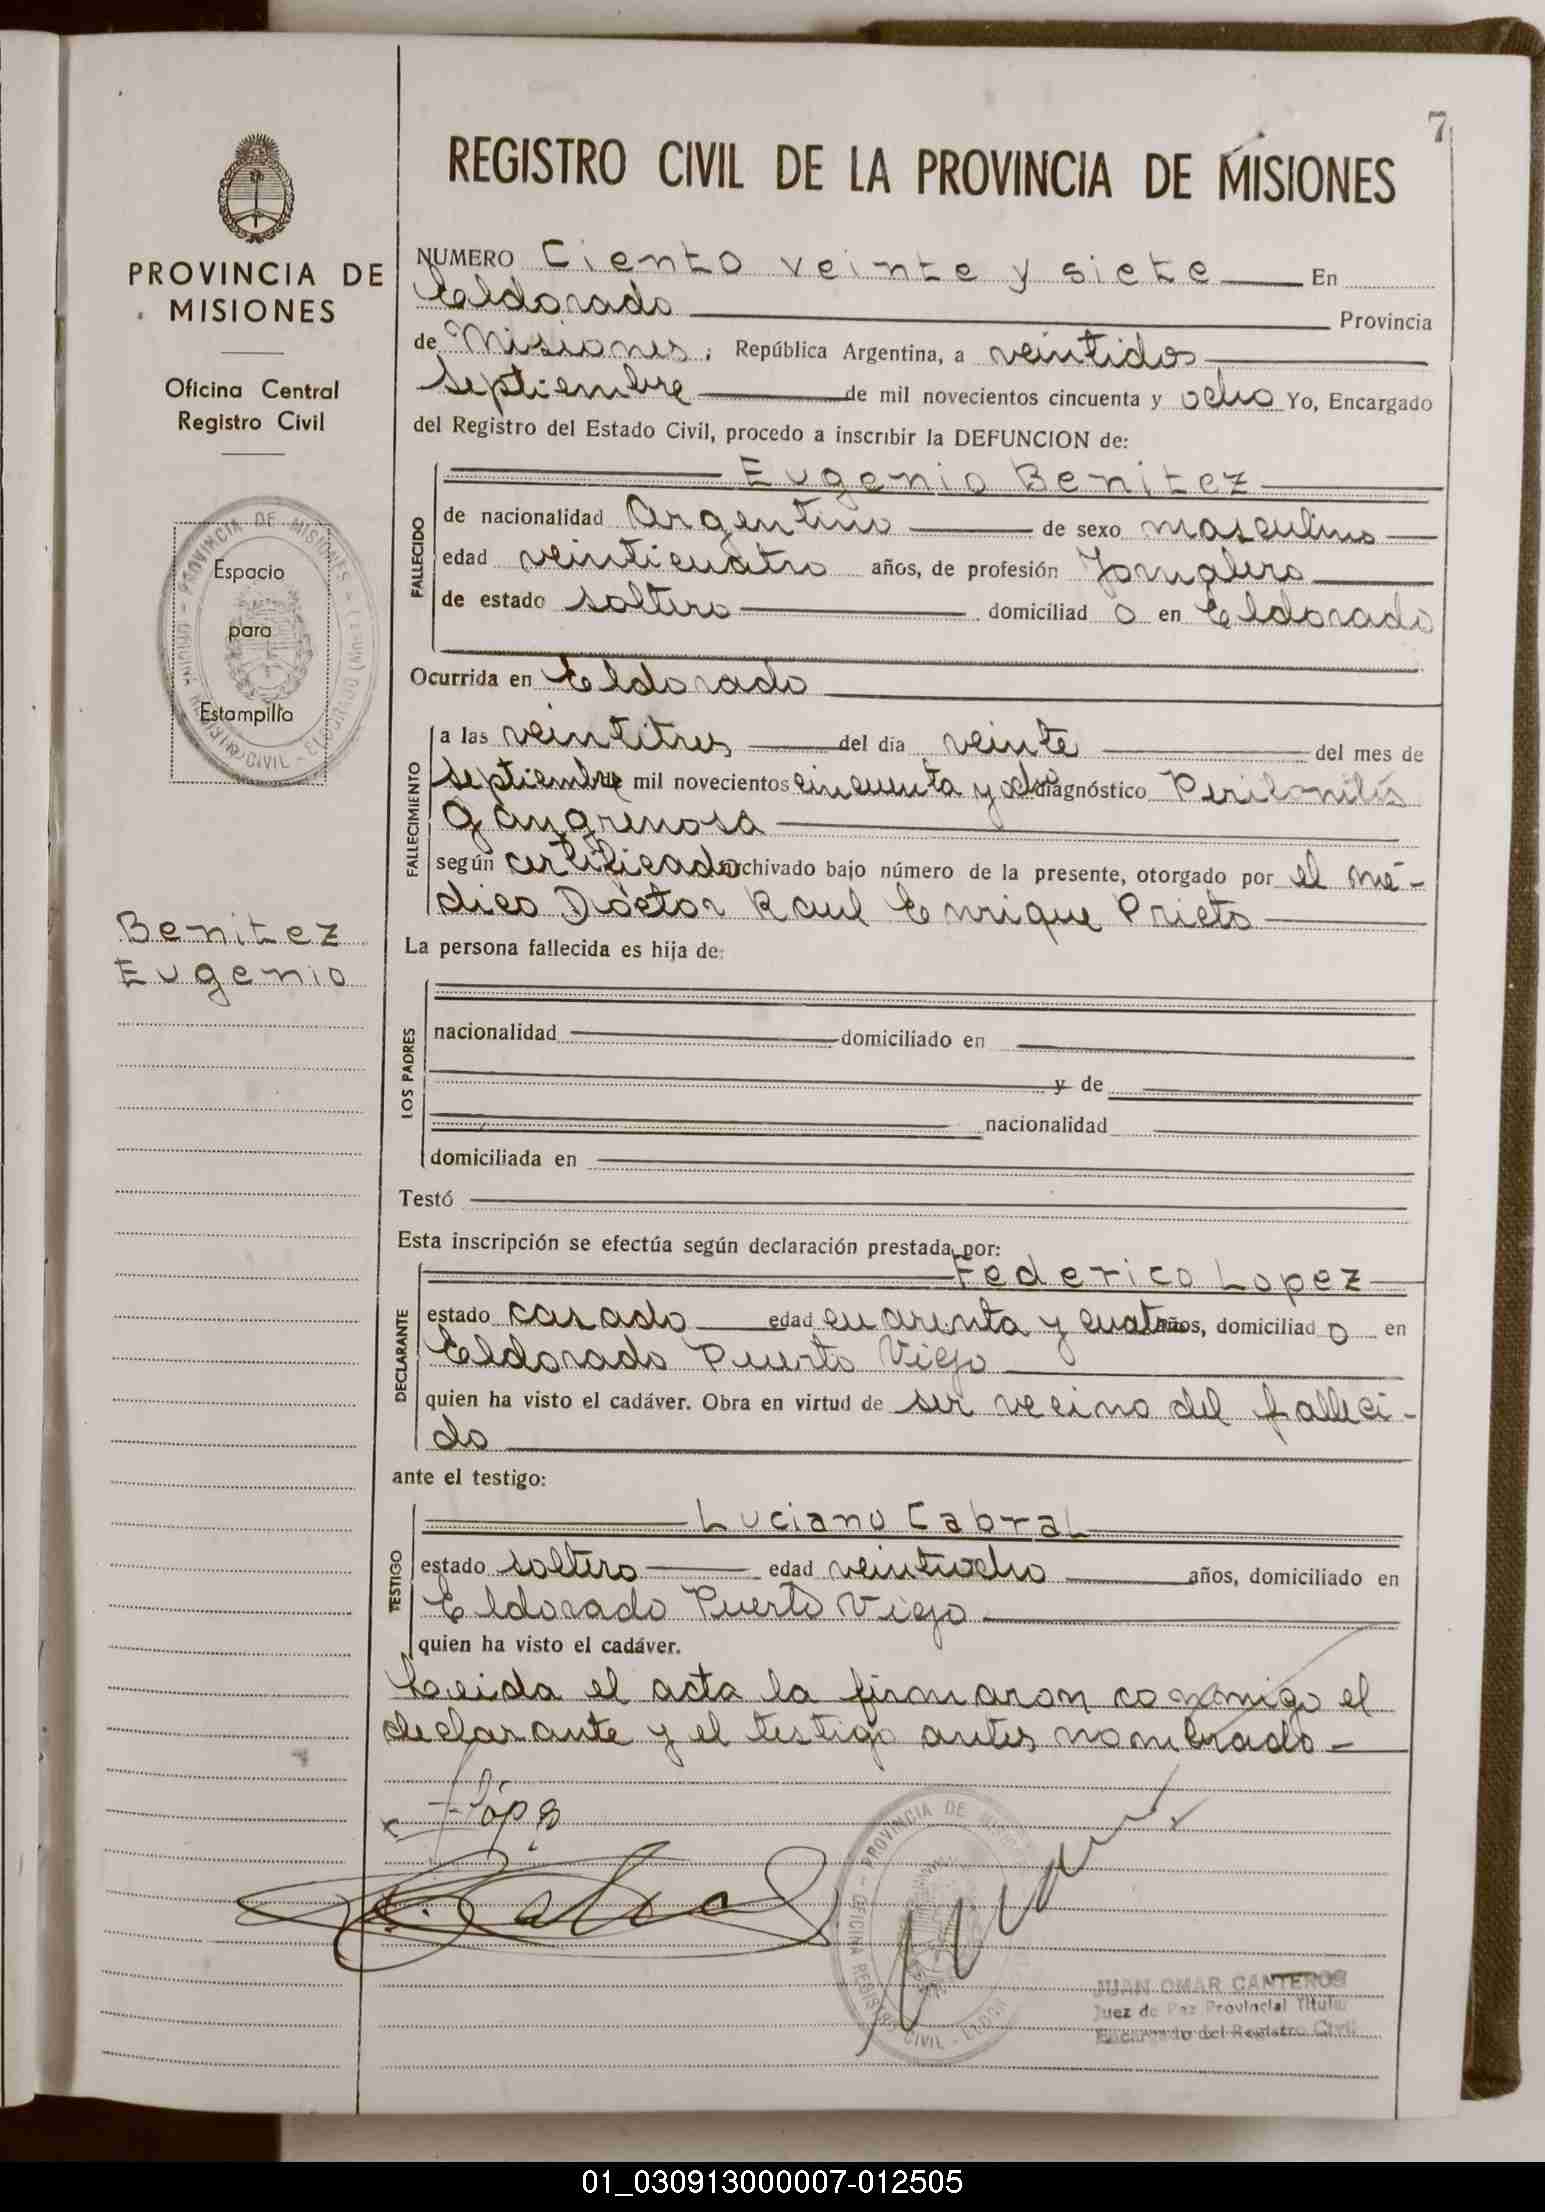 7
REGISTRO CIVIL DE LA PROVINCIA DE MISIONES
PROVINCIA DE
MISIONES
Oficina Central
Registro Civil
Espacio
para
Estampilla
PROVINCIA DE MISIONES
Benitez
Eugenio
NUMERO Ciento veinte y siete En
Eldorado Provincia
de Misiones, República Argentina, a veintidos
septiembre de mil novecientos cincuenta y ocho Yo, Encargado
del Registro del Estado Civil, procedo a inscribir la DEFUNCION de:
Eugenio Benitez
FALLECIDO
de nacionalidad Argentino de sexo masculino
edad veinticuatro años, de profesión Jornalero
de estado soltero domiciliad o en Eldorado
Ocurrida en Eldorado
FALLECIMIENTO
a las veintitres del día veinte del mes de
septiembre de mil novecientos cincuenta y ocho diagnóstico Peritonitis
gangrenosa
según certificado archivado bajo número de la presente, otorgado por el mé-
dico Dóctor Raul Enrique Prieto
La persona fallecida es hija de:
LOS PADRES
nacionalidad domiciliado en
y de
nacionalidad
domiciliada en
Testó
Esta inscripción se efectúa según declaración prestada por:
Federico Lopez
DECLARANTE
estado casado edad cuarenta y cuatro años, domiciliad o en
Eldorado Puerto Viejo
quien ha visto el cadáver. Obra en virtud de ser vecino del falleci-
do
ante el testigo:
Luciano Cabral
TESTIGO
estado soltero edad veintiocho años, domiciliado en
Eldorado Puerto Viejo
quien ha visto el cadáver.
Leida el acta la firmaron conmigo el
declarante y el testigo antes nombrado
F López
L. Cabral
PROVINCIA DE MISIONES
OFICINA REGISTRO CIVIL
JUAN OMAR CANTEROS
Juez de Paz Provincial Titular
Encargado del Registro Civil
01_030913000007-012505